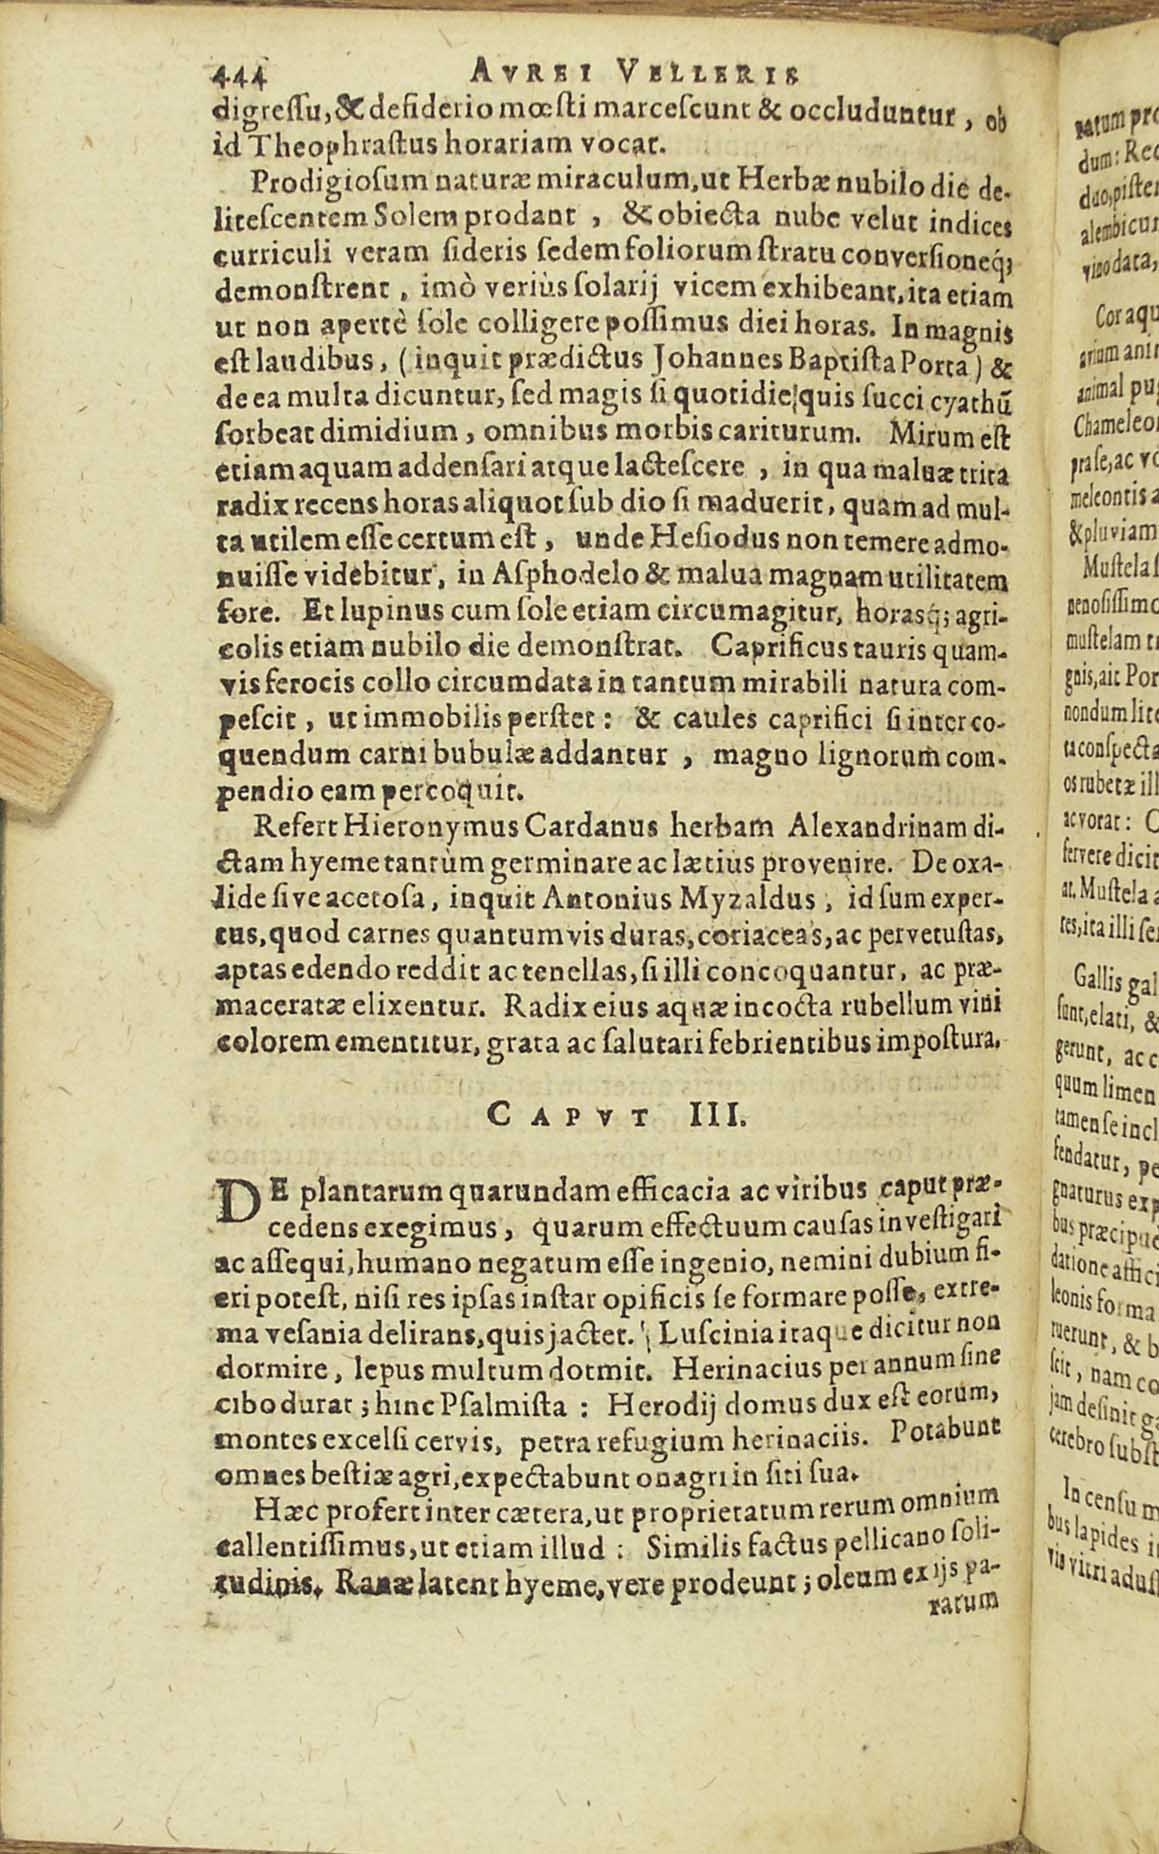 444 AVREI VELLERIS
digreſſu, & deſiderio mœſti marceſcunt & occluduntur, ob
id Theophraſtus horariam vocat.
Prodigioſum naturæ miraculum, ut Herbæ nubilo die de-
liteſcentem Solem prodant, & obiecta nube velut indices
curriculi veram ſideris ſedem foliorum ſtratu converſioneq́;
demonſtrent, imò veriùs ſolarij vicem exhibeant, ita etiam
ut non apertè ſole colligere poſſimus diei horas. In magnis
eſt laudibus, (inquit prædictus Johannes Baptiſta Porta) &
de ea multa dicuntur, ſed magis ſi quotidie quis ſucci cyathũ
ſorbeat dimidium, omnibus morbis cariturum. Mirum eſt
etiam aquam addenſari atque lacteſcere, in qua maluæ trita
radix recens horas aliquot ſub dio ſi maduerit, quam ad mul-
ta utilem eſſe certum eſt, unde Heſiodus non temere admo-
nuiſſe videbitur, in Aſphodelo & malua magnam utilitatem
fore. Et lupinus cum ſole etiam circumagitur, horasq́; agri-
colis etiam nubilo die demonſtrat. Caprificus tauris quam-
vis ferocis collo circumdata in tantum mirabili natura com-
peſcit, ut immobilis perſtet: & caules caprifici ſi inter co-
quendum carni bubulæ addantur, magno lignorum com-
pendio eam percoquit.
Refert Hieronymus Cardanus herbam Alexandrinam di-
ctam hyeme tantùm germinare ac lætius provenire. De oxa-
lide ſive acetoſa, inquit Antonius Myzaldus, id ſum exper-
tus, quod carnes quantumvis duras, coriaceas, ac pervetuſtas,
aptas edendo reddit ac tenellas, ſi illi concoquantur, ac præ-
maceratæ elixentur. Radix eius aquæ incocta rubellum vini
colorem ementitur, grata ac ſalutari febrientibus impoſtura.
CAPVT III.
DE plantarum quarundam efficacia ac viribus caput præ-
cedens exegimus, quarum effectuum cauſas inveſtigari
ac aſſequi, humano negatum eſſe ingenio, nemini dubium fi-
eri poteſt, niſi res ipſas inſtar opificis ſe formare poſſe, extre-
ma veſania delirans, quis jactet. Luſcinia itaque dicitur non
dormire, lepus multum dormit. Herinacius per annum ſine
cibo durat; hinc Pſalmiſta: Herodij domus dux eſt eorum,
montes excelſi cervis, petra refugium herinaciis. Potabunt
omnes beſtiæ agri, expectabunt onagri in ſiti ſua.
Hæc profert inter cætera, ut proprietatum rerum omnium
callentiſſimus, ut etiam illud: Similis factus pellicano ſoli-
tudinis. Ranæ latent hyeme, vere prodeunt; oleum ex ijs pa-
ratum
ratum pro
dum: Rec
duo, piſte
alembicu
vino data,
Cor aqu
arium ani
animal pu
Chameleo
praſe, ac v
meleontis a
& pluviam
Muſtela ſ
nenoſiſſimo
muſtelam t
gnis, ait Por
nondum lit
ta conſpecta
os rubetæ ill
ac vorat: C
fervere dicit
at. Muſtela a
tes, ita illi ſe
Gallis gal
ſunt, elati, &
gerunt, ac c
quum limen
tamen ſe incl
fendatur, pe
gnaturus exp
bus præcipue
datione affici
leonis forma
tuerunt, & b
ſcit, nam co
jam deſinit g
cerebro ſubſt
In cenſu m
bus lapides i
vis vitri aduſ